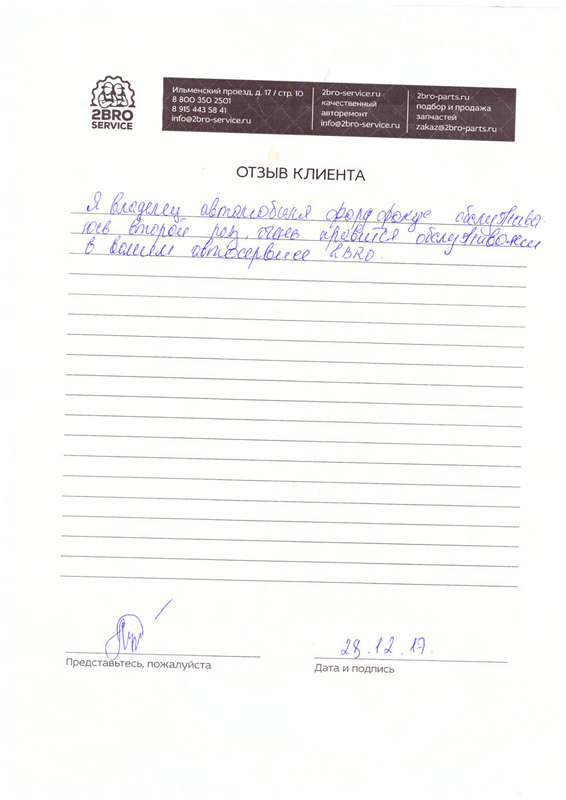 2BRO
SERVICE
Ильменский проезд, д. 17 / стр. 10
8 800 350 2501
8 915 443 58 41
info@2bro-service.ru
2bro-service.ru
качественный
авторемонт
info@2bro-service.ru
2bro-parts.ru
подбор и продажа
запчастей
zakaz@2bro-parts.ru
ОТЗЫВ КЛИЕНТА
Я владелец автомобиля форд фокус обслужива-
юсь второй раз, очень нравится обслуживание
в вашем автосервисе 2BRO.
Представьтесь, пожалуйста
28.12.17.
Дата и подпись